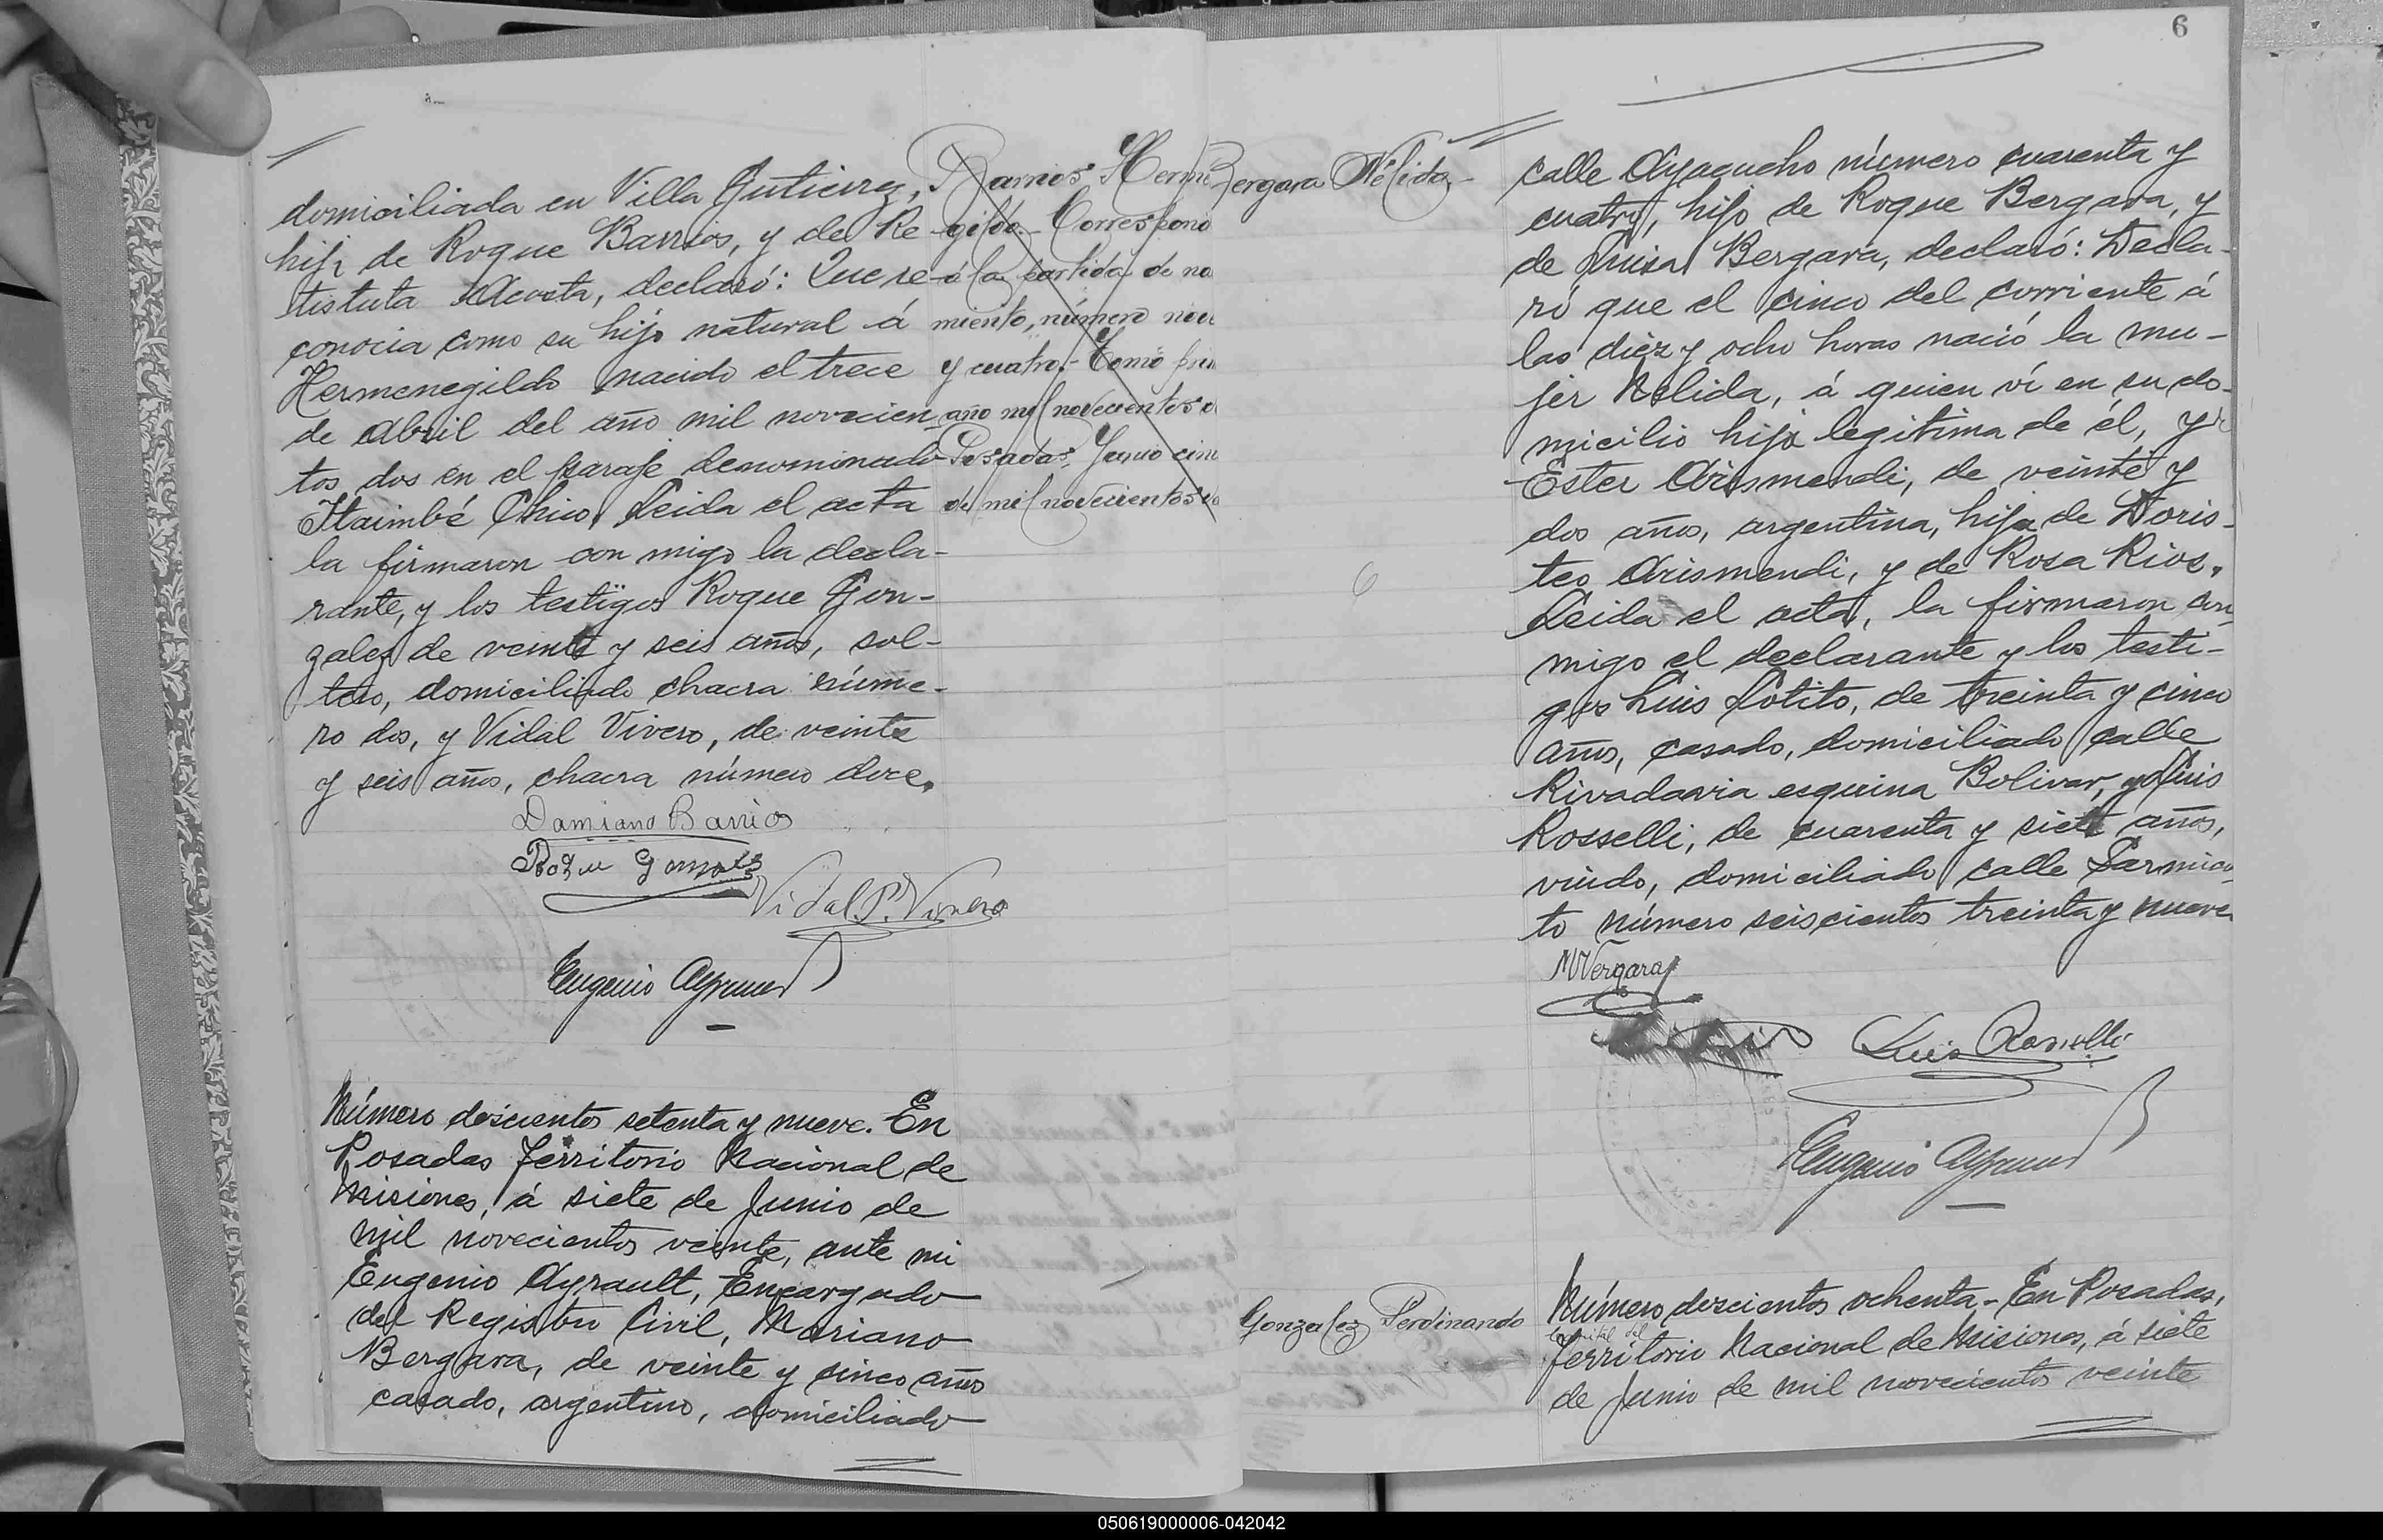 domiciliada en Villa Gutierrez,
hija de Roque Barrios, y de Re
tistuta Acosta, declaró: Que re-
conocia como su hijo natural á
Hermenegildo nacido el trece
de Abril del año mil novecien-
tos dos en el paraje denominado
Itaimbé Chico. Leida el acta
la firmaron con migo la decla-
rante, y los testigos Roque Gon-
zalez de veinte y seis años, sol-
tero, domiciliado chacra núme-
ro dos, y Vidal Vivero, de veinte
y seis años, chacra número doce.
Damiana Barrios
Roque Gonzalez
Vidal P. Vivero
Eugenio Ayrault
Barrios Herme
gildo.- Correspond
á la partida de na
miento, número nov
y cuatro.- Tomo prim
año mil novecientos d
Posadas, Junio cin
de mil novecientos ve
Número doscientos setenta y nueve. En
Posadas Territorio Nacional de
Misiones, á siete de Junio de
mil novecientos veinte, ante mi
Eugenio Ayrault, Encargado
del Registro Civil, Mariano
Bergara, de veinte y cinco años
casado, argentino, domiciliado
6
Bergara Nélida-
calle Ayacucho número cuarenta y
cuatro, hijo de Roque Bergara, y
de Luisa Bergara, declaró: Decla-
ró que el cinco del corriente á
las diez y ocho horas nació la mu-
jer Nelida, á quien ví en su do-
micilio hija legitima de él, y
Ester Arismendi, de veinte y
dos años, argentina, hija de Doris-
teo Arismendi, y de Rosa Rios.
Leida el acta, la firmaron con
migo el declarante y los testi-
gos Luis Lotito, de treinta y cinco
años, casado, domiciliado calle
Rivadavia esquina Bolivar, y Luis
Rosselli, de cuarenta y siete años,
viudo, domiciliado calle Sarmien-
to número seiscientos treinta y nueve
6
M Vergara
Luis Rosselli
Eugenio Ayrault
Gonzalez Ferdinando
Número doscientos ochenta.- En Posadas,
capital del
Territorio Nacional de Misiones, á siete
de Junio de mil novecientos veinte
050619000006-042042